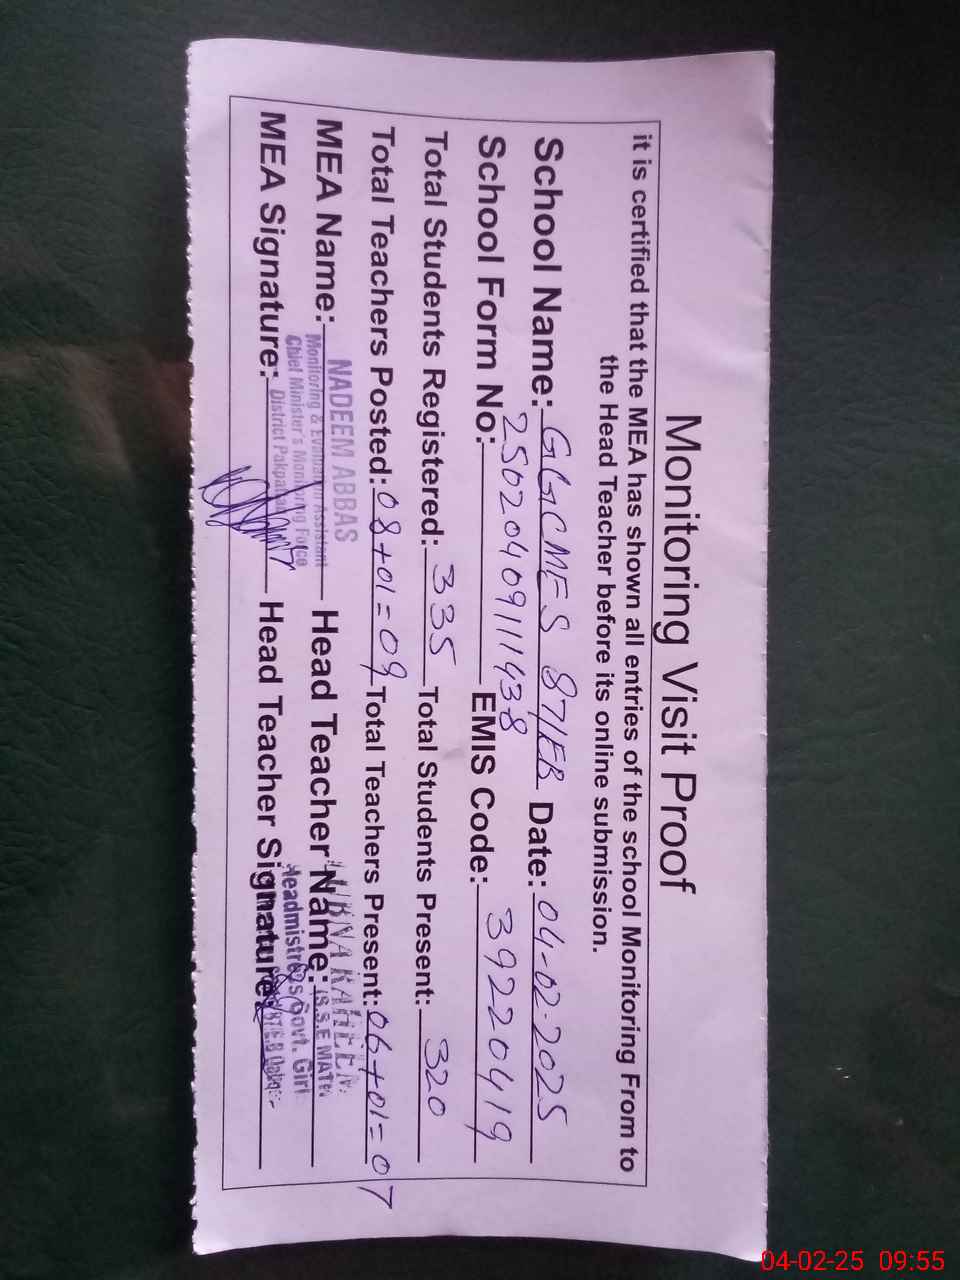 Monitoring Visit Proof
it is certified that the MEA has shown all entries of the school Monitoring From to
the Head Teacher before its online submission.
School Name: GGCMES 87/EB Date: 04-02-2025
School Form No: 25020409111438 EMIS Code: 39220419
Total Students Registered: 335 Total Students Present: 320
Total Teachers Posted: 08+01=09 Total Teachers Present: 06+01=07
MEA Name: NADEEM ABBAS Head Teacher Name: LUBNA RAHEEM
Monitoring & Evaluation Assistant (S.S.E MATH
Chief Minister's Monitoring Force Headmistress Govt. Girl
MEA Signature: District Pakpattan Head Teacher Signature:
04-02-25 09:55